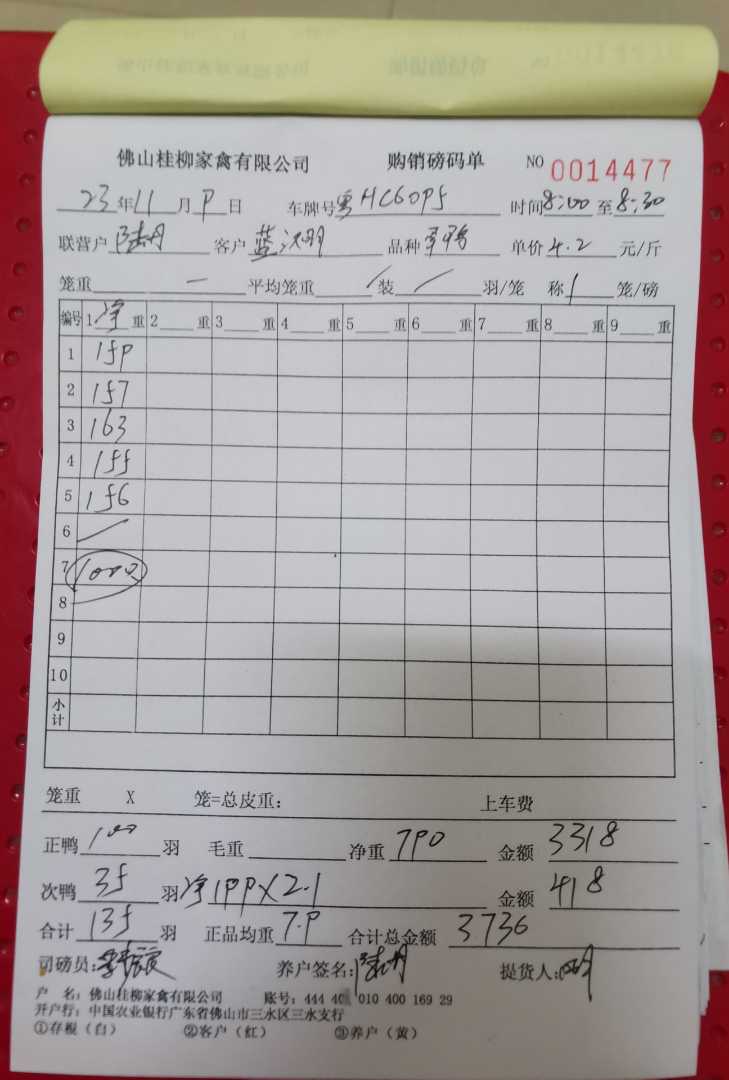 佛山桂柳家禽有限公司 购销磅码单 NO 0014477
23年11月9日 车牌号粤HC6095 时间8:00至8:30
联营户 客户 品种 单价4.2元/斤
笼重 一 平均笼重 / 装 / 羽/笼 称 / 笼/磅
编号 1净重 2 重 3 重 4 重 5 重 6 重 7 重 8 重 9 重
1 159
2 157
3 163
4 155
5 156
6 /
7 100只
8
9
10
小计
笼重 X 笼=总皮重: 上车费
正鸭100羽 毛重 净重790 金额3318
次鸭35羽 净199X2.1 金额418
合计135羽 正品均重7.9 合计总金额3736
司磅员: 养户签名: 提货人:
户 名: 佛山桂柳家禽有限公司 账号: 444 40 010 400 169 29
开户行: 中国农业银行广东省佛山市三水区三水支行
①存根(白) ②客户(红) ③养户(黄)